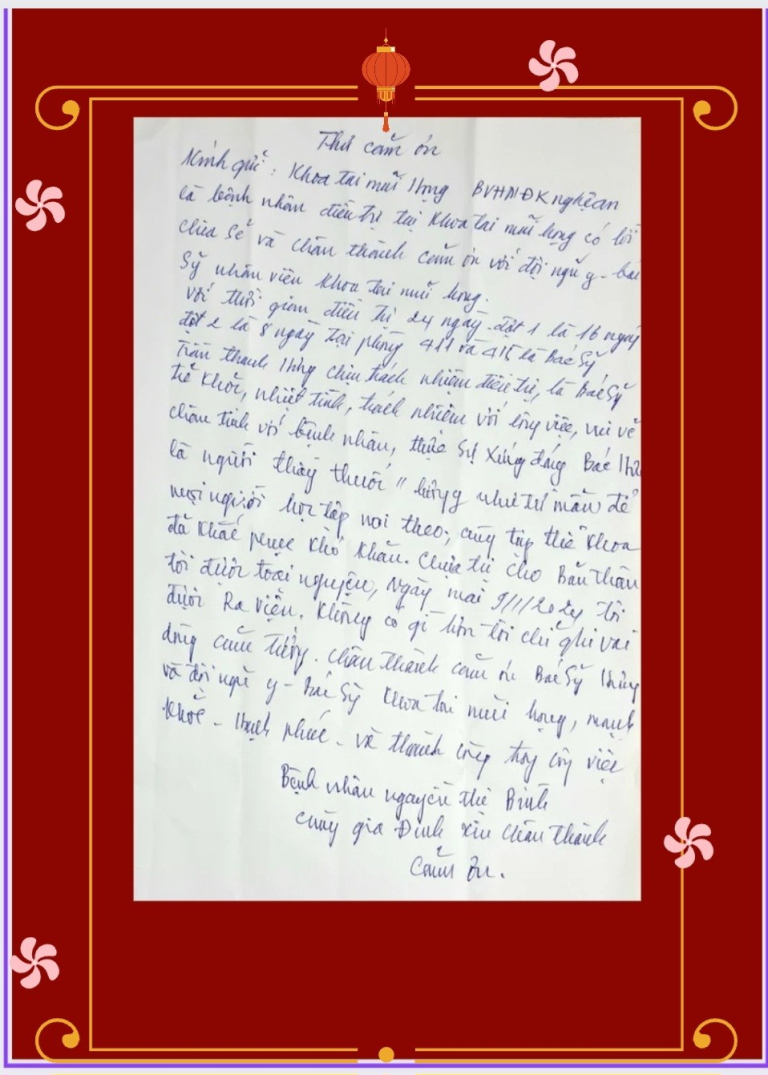 Thư cảm ơn
Kính gửi: Khoa tai mũi Họng BVHNĐK nghệ an
là bệnh nhân điều trị tại Khoa tai mũi họng có lời
chia sẻ và chân thành cảm ơn với đội ngũ y - bác
Sỹ nhân viên Khoa tai mũi họng.
với thời gian điều trị 24 ngày. đợt 1 là 16 ngày
đợt 2 là 8 ngày tại phòng 411 và là Bác Sỹ
Trần thanh Hùng chịu trách nhiệm điều trị, là Bác Sỹ
nhiệt tình, trách nhiệm với công việc, vui vẻ
chân tình với bệnh nhân, thực sự Xứng đáng Bác
là người thầy thuốc " lương y như từ mẫu để
mọi người học tập noi theo, cùng tập thể Khoa
đã Khắc phục Khó Khăn. Chữa trị cho Bản thân
tôi được toại nguyện, Ngày mai 9/1/2024 tôi
được Ra viện. Không có gì hơn tôi chỉ ghi vài
dòng cảm tưởng. Chân thành cảm ơn Bác Sỹ Hùng
và đội ngũ y - Bác Sỹ Khoa tai mũi họng, mạnh
Khỏe - Hạnh phúc - và thành công trong công việc
Bệnh nhân nguyễn thị Bình
cùng gia Đình xin chân thành
Cảm ơn.